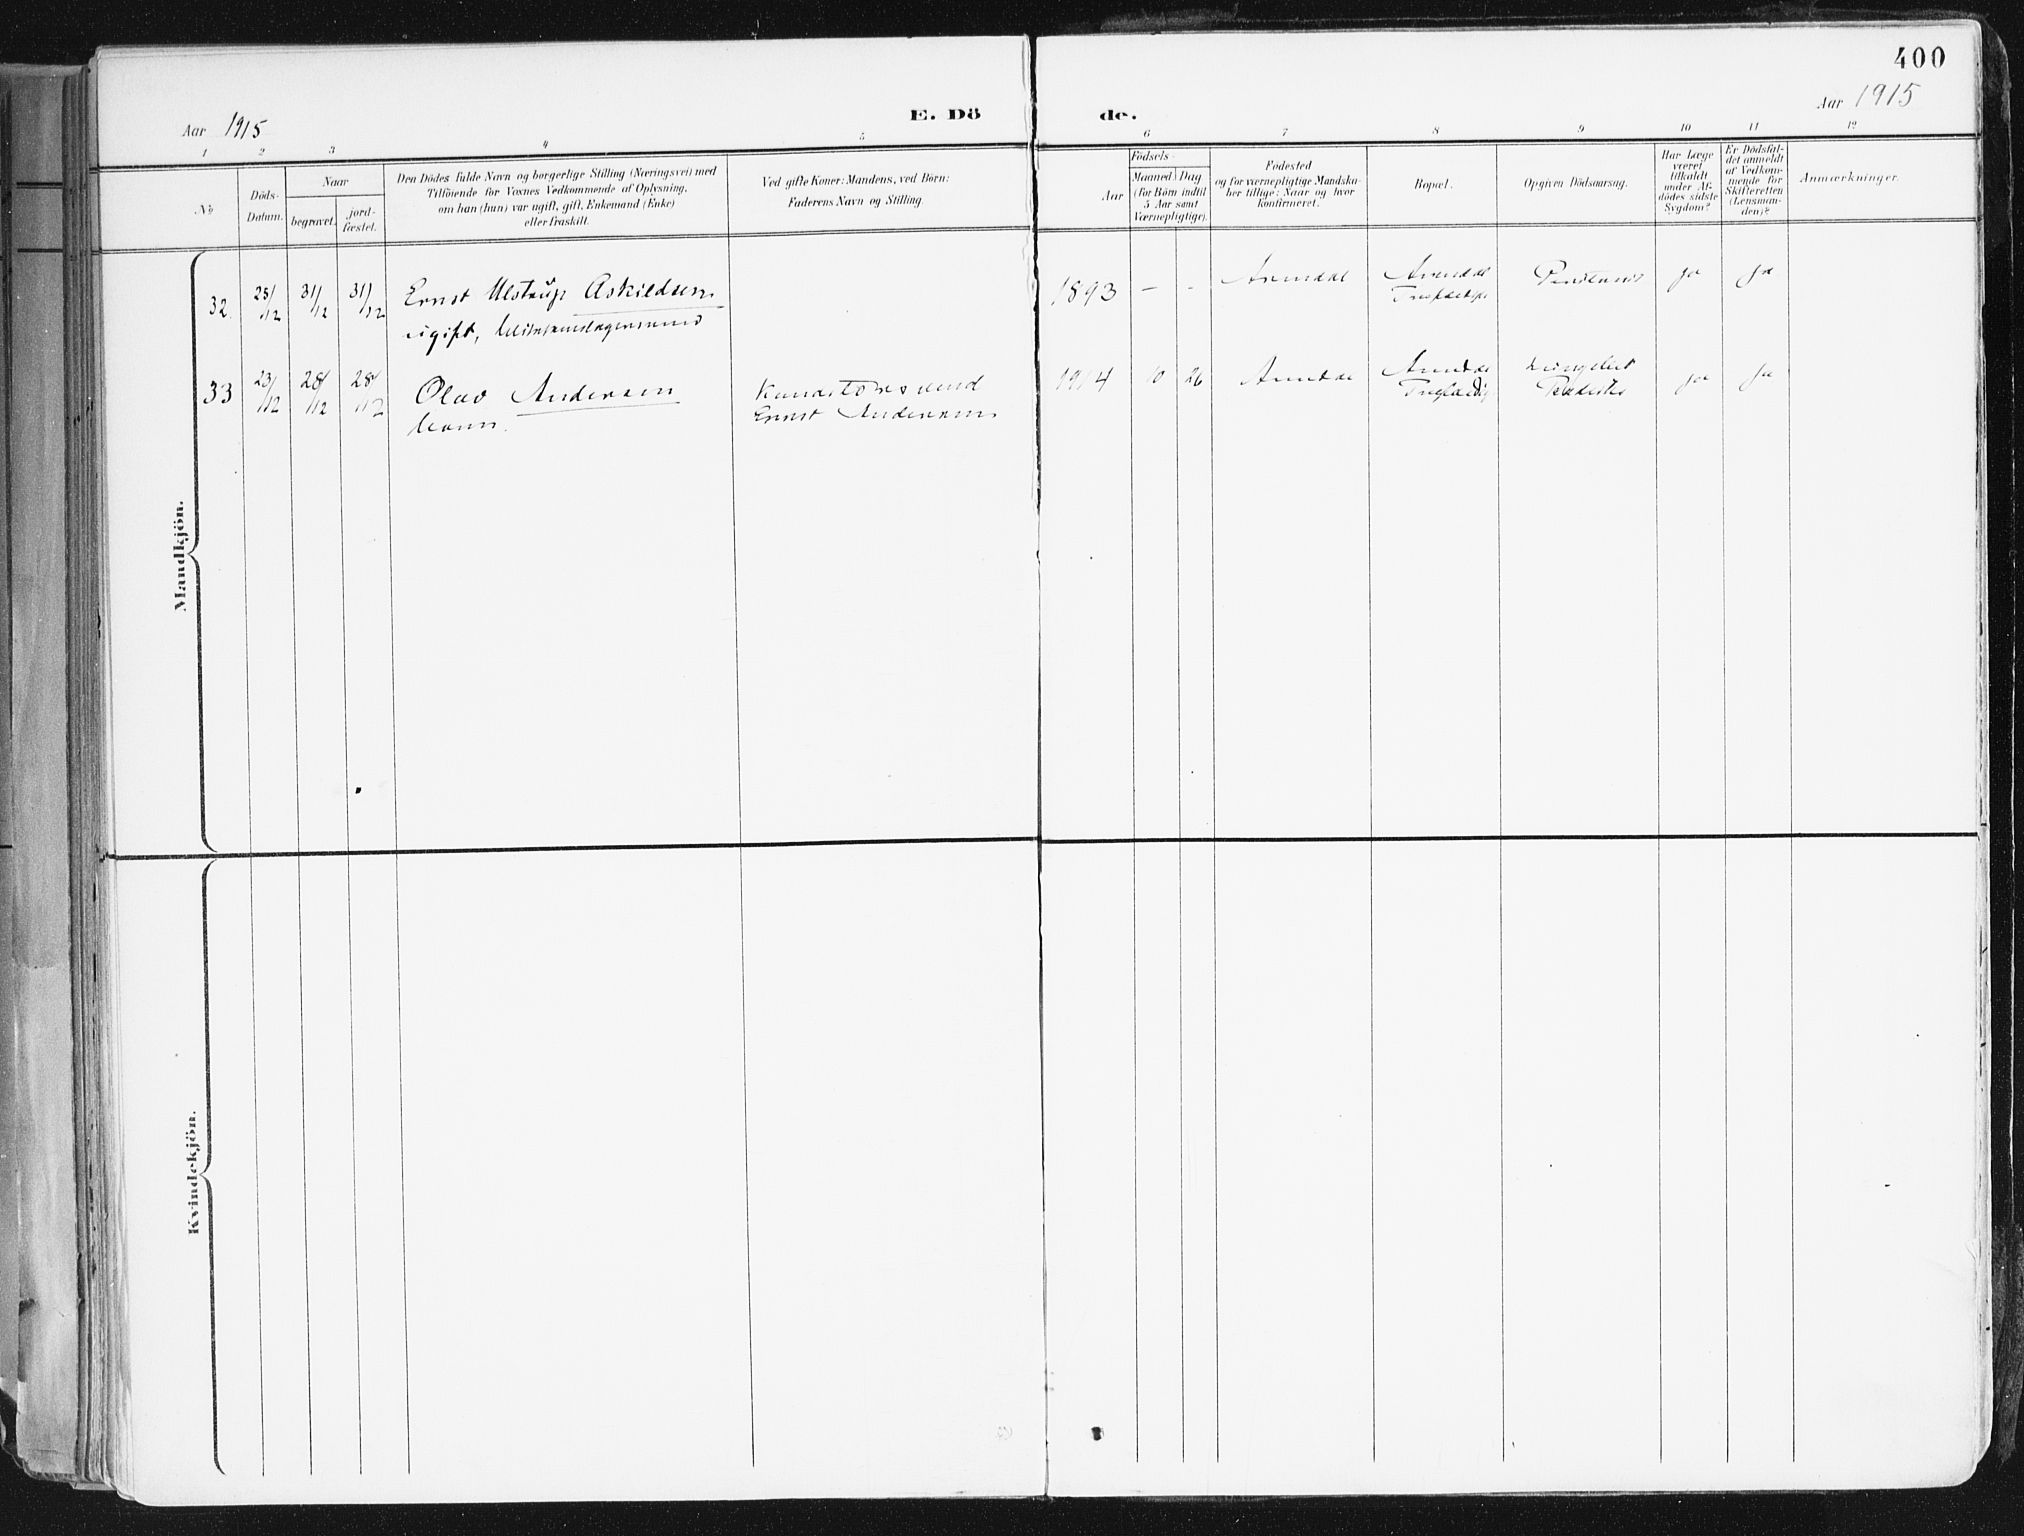 400
Aar 1915
E. Dö
de.
Aar 1915
1 2 3 4 5 6 7 8 9 10 11 12
No
Döds-
Datum.
Naar
begravet.
jord-
fæstet.
Den Dödes fulde Navn og borgerlige Stilling (Næringsvei) med
Tilföiende for Voxnes Vedkommende af Oplysning,
om han (hun) var ugift, gift, Enkemand (Enke)
eller fraskilt.
Ved gifte Koner: Mandens, ved Börn:
Faderens Navn og Stilling.
Aar
Födsels-
Maaned Dag
(for Börn indtil
5 Aar samt
Værnepligtige).
Födested
og for værnepligtige Mandska-
ber tillige: Naar og hvor
Konfirmeret.
Bopæl.
Opgiven Dödsaarsag.
Har Læge
været
tilkaldt
under Af-
dödes sidste
Sygdom?
Er Dödsfal-
det anmeldt
af Vedkom-
mende for
Skifteretten
(Lensman-
den)?
Anmærkninger.
Mandkjön.
32. 25/12 31/12 31/12 Ernst Ulstrup Askildsen 1893 - - Arendal Arendal ja ja
ugift,
33 23/12 28/12 28/12 Olav Andersen 1914 10 26 Arendal Arendal ja ja
barn.
Ernst Andersen
Kvindekjön.